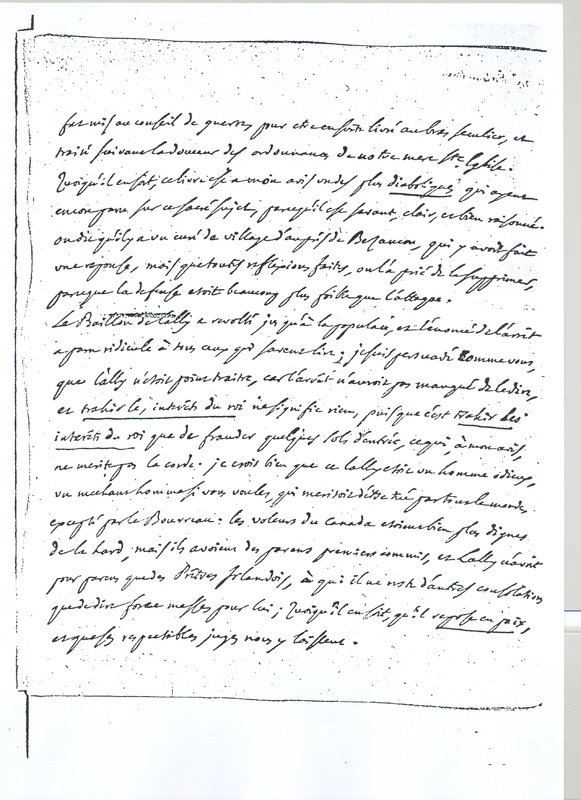 fut mis au conseil de guerre, pour etre ensuite livré au bras seculier, et
traité suivant la douceur des ordonnances de notre mere Ste. Eglise.
Quoiqu'il en soit, ce livre est a mon avis un des plus diaboliques qui ayent
encore paru sur ce sacré sujet, parcequ'il est savant, clair, et bien raisonné.
on dit qu'il y a un curé de village d'auprès de Bezancon, qui y avoit fait
une reponse, mais que toutes reflexions faites, on l'a prié de la supprimer,
parceque la defense etoit beaucoup plus foible que l'attaque.
Le Baillon de Lally a revolté jusqu'à la populace, et l'enoncé de l'arrêt
a paru ridicule à tous ceux qui savent lire; je suis persuadé comme vous,
que Lally n'étoit point traitre, car l'arrêt n'auroit pas manqué de le dire,
et trahir les interêts du roi ne signifie rien, puisque c'est trahir les
interêts du roi que de frauder quelques sols d'entrée, ce qui, à mon avis,
ne merite pas la corde. je crois bien que ce Lally etoit un homme odieux,
un mechant homme si vous voules, qui meritoit d'être tué par tout le monde,
excepté par le Bourreau: les voleurs du Canada etoient bien plus dignes
de la hard, mais ils avoient des parens premiers commis, et Lally n'avoit
pour parens que des Prêtres Irlandois, à qui il ne reste d'autres consolations
que de dire force messes pour lui; Quoiqu'il en soit, qu'il repose en paix,
et que ses respectables juges nous y laissent.